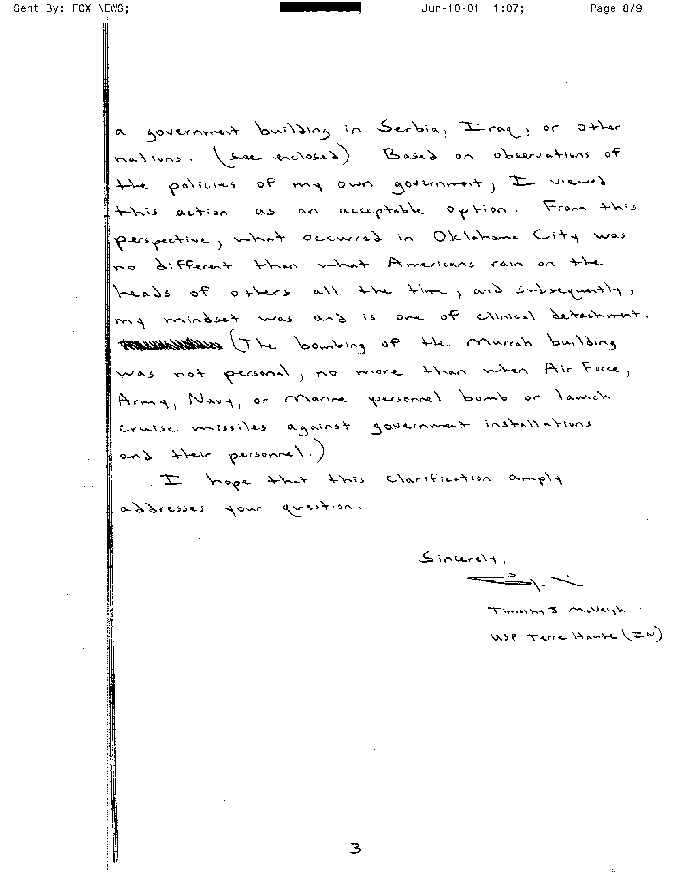 Sent By: FOX NEWS; Jun-10-01 1:07; Page 8/9
a government building in Serbia, Iraq, or other
nations. (see enclosed) Based on observations of
the policies of my own government, I viewed
this action as an acceptable option. From this
perspective, what occurred in Oklahoma City was
no different than what Americans rain on the
heads of others all the time, and subsequently,
my mindset was and is one of clinical detachment.
(The bombing of the Murrah building
was not personal, no more than when Air Force,
Army, Navy, or Marine personnel bomb or launch
cruise missiles against government installations
and their personnel.)
I hope that this clarification amply
addresses your question.
Sincerely,
Timothy J McVeigh
USP Terre Haute (IN)
3